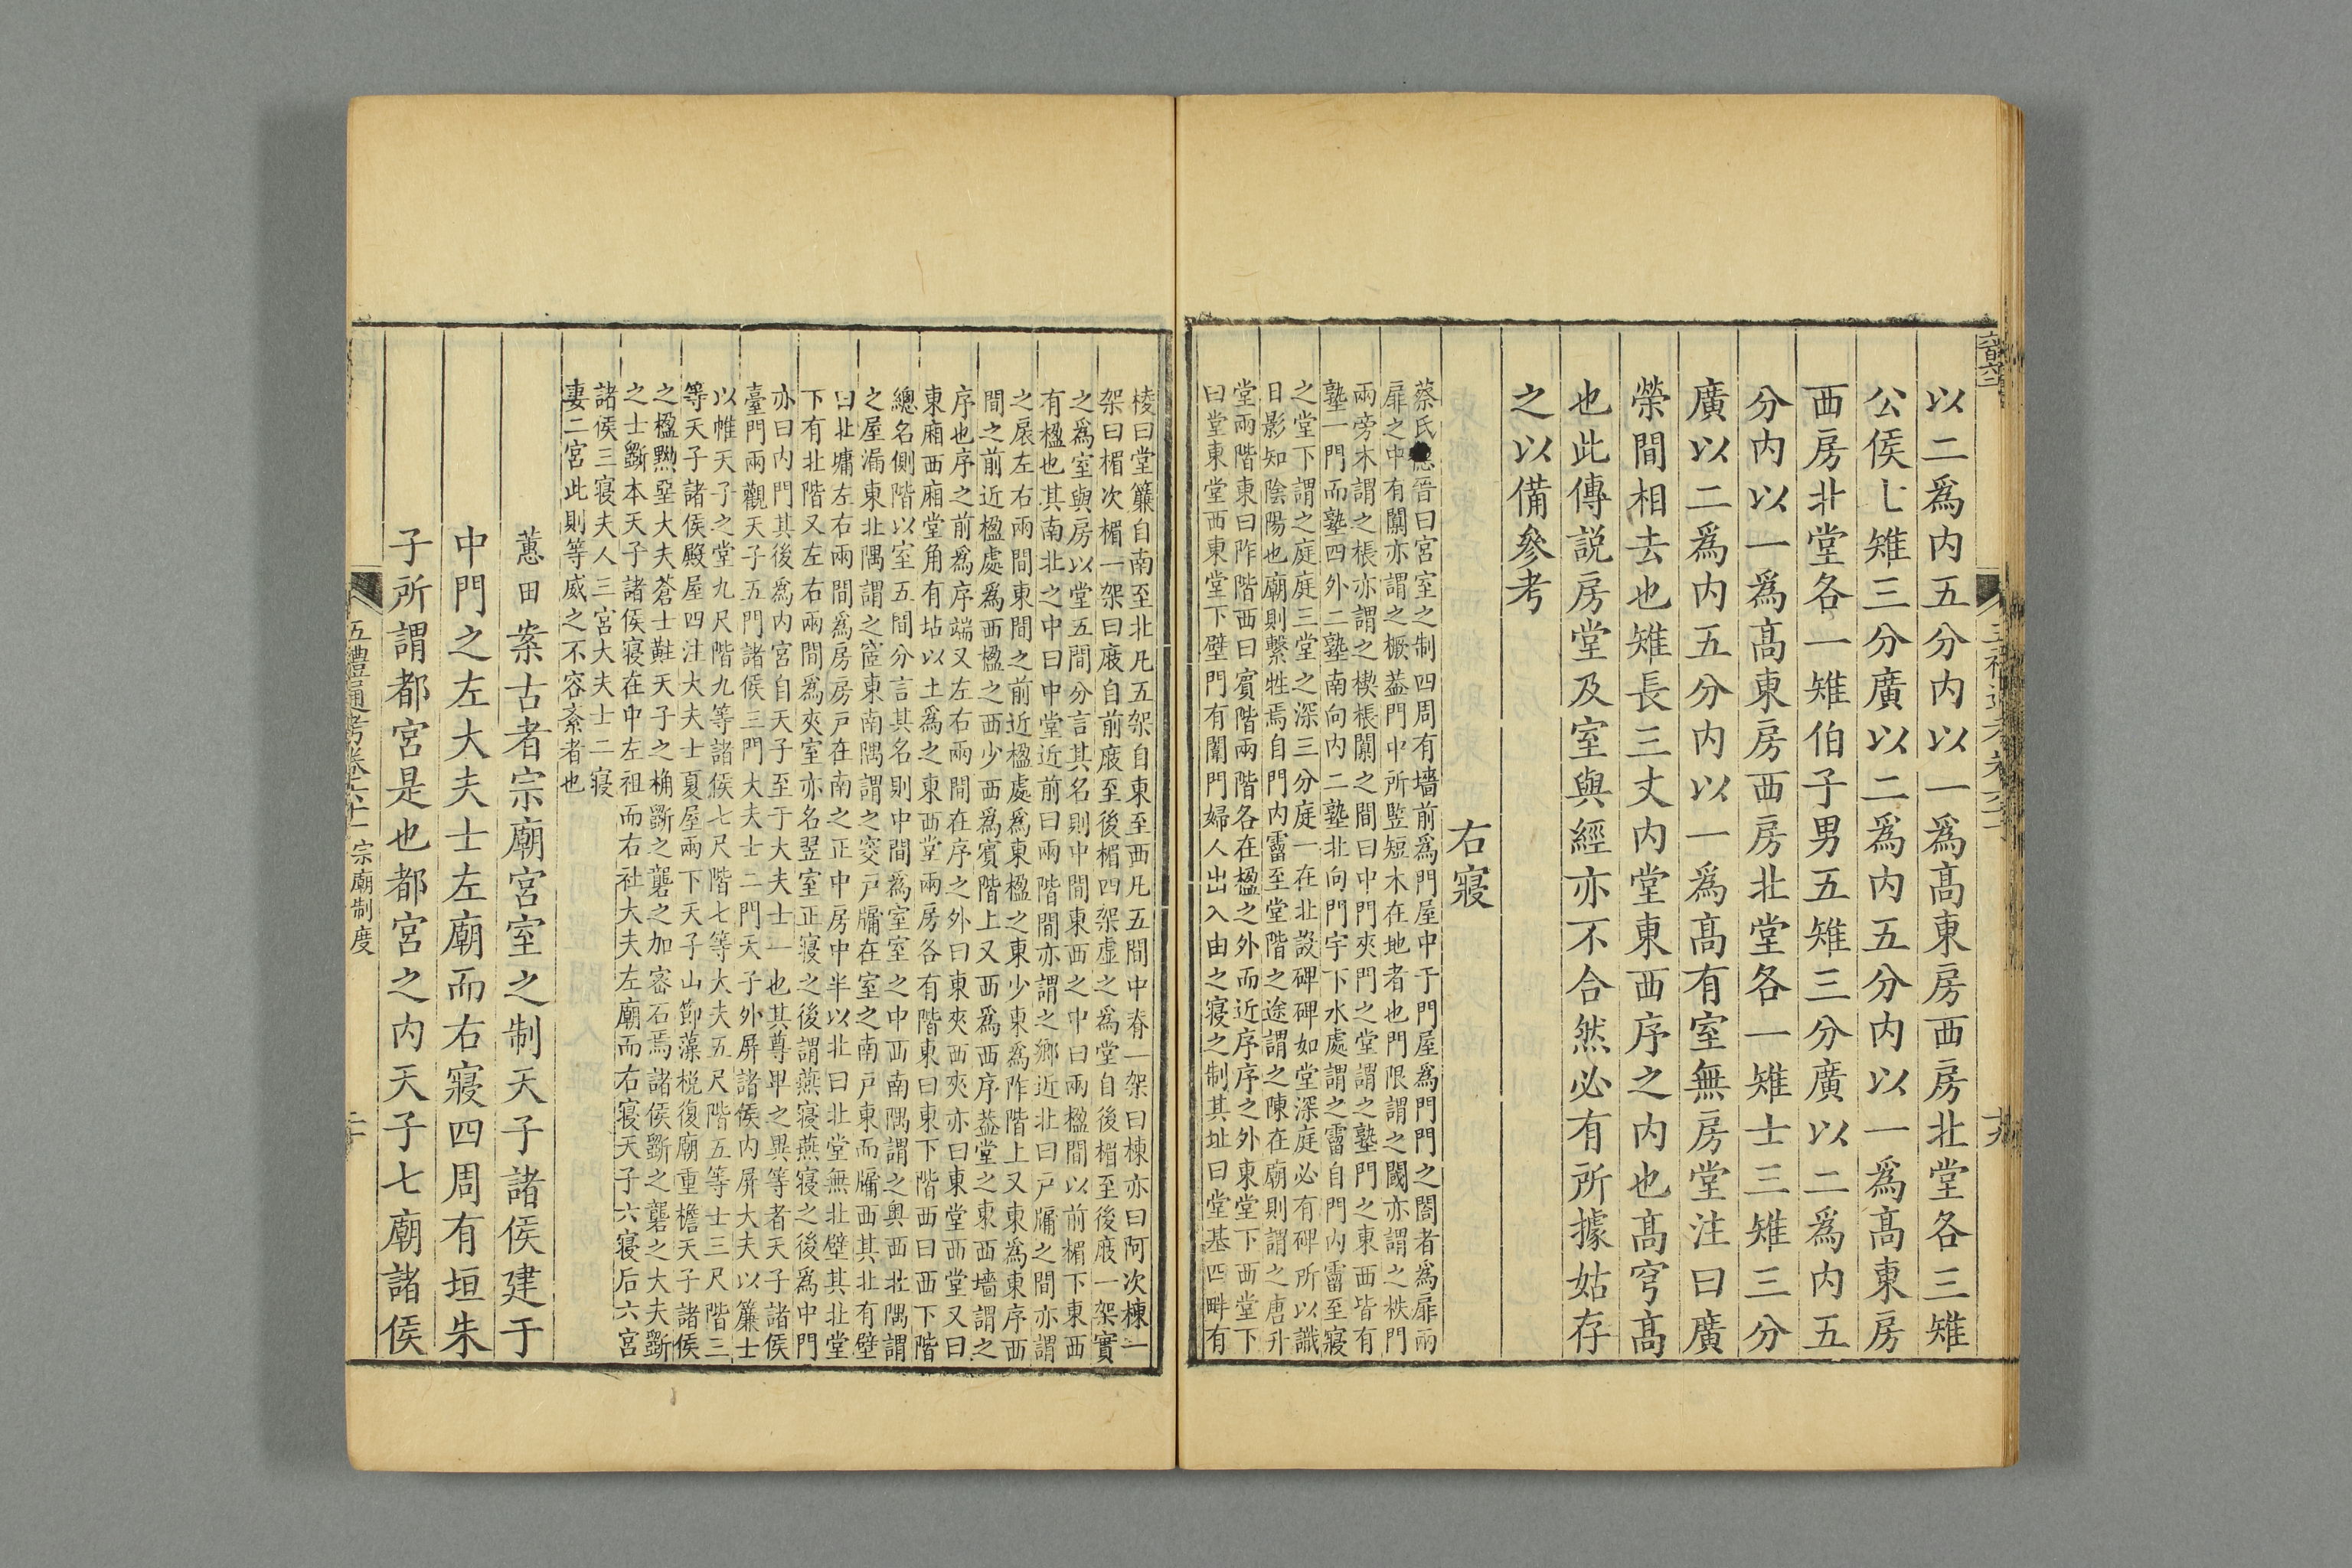 以二爲内五分内以一爲髙東房西房北堂各三雉
公侯七雉三分廣以二爲内五分内以一爲髙東房
西房北堂各一雉伯子男五雉三分廣以二爲内五
分内以一爲髙東房西房北堂各一雉士三雉三分
廣以二爲内五分内以一爲髙有室無房堂注曰廣
榮間相去也雉長三丈内堂東西序之内也髙穹髙
也此傳説房堂及室與經亦不合然必有所據姑存
之以備參考
右寢
蔡氏晉曰宮室之制四周有墻前爲門屋中于門屋爲門門之闔者爲扉兩
扉之中有闑亦謂之橛葢門中所監短木在地者也門限謂之閾亦謂之柣門
兩旁木謂之棖亦謂之楔棖闑之間曰中門夾門之堂謂之塾門之東西皆有
塾一門而塾四外二塾南向内二塾北向門宇下水處謂之霤自門内霤至寢
之堂下謂之庭庭三堂之深三分庭一在北設碑碑如堂深庭必有碑所以識
日影知陰陽也廟則繫牲焉自門内霤至堂階之途謂之陳在廟則謂之唐升
堂兩階東曰阼階西曰賓階兩階各在楹之外而近序序之外東堂下西堂下
曰堂東堂西東堂下壁門有闈門婦人出入由之寢之制其址曰堂基四畔有
棱曰堂簾自南至北凡五架自東至西凡五間中脊一架曰棟亦曰阿次棟一
架曰楣次楣一架曰庪自前庪至後楣四架虛之爲堂自後楣至後庪一架實
之爲室與房以堂五間分言其名則中間東西之中曰兩楹間以前楣下東西
有楹也其南北之中曰中堂近前曰兩階間亦謂之鄉近北曰戸牖之間亦謂
之扆左右兩間東間之前近楹處爲東楹之東少東爲阼階上又東爲東序西
間之前近楹處爲西楹之西少西爲賓階上又西爲西序葢堂之東西墻謂之
序也序之前爲序端又左右兩間在序之外曰東夾西夾亦曰東堂西堂又曰
東廂西廂堂角有坫以土爲之東西堂兩房各有階東曰東下階西曰西下階
總名側階以室五間分言其名則中間爲室室之中西南隅謂之奥西北隅謂
之屋漏東北隅謂之宧東南隅謂之窔戸牖在室之南戸東而牖西其北有壁
曰北墉左右兩間爲房房戸在南之正中房中半以北曰北堂無北壁其北堂
下有北階又左右兩間爲夾室亦名翌室正寢之後謂燕寢燕寢之後爲中門
亦曰内門其後爲内宮自天子至于大夫士一也其尊卑之異等者天子諸侯
臺門兩觀天子五門諸侯三門大夫士二門天子外屏諸侯内屏大夫以簾士
以帷天子之堂九尺階九等諸侯七尺階七等大夫五尺階五等士三尺階三
等天子諸侯殿屋四注大夫士夏屋兩下天子山節藻梲復廟重檐天子諸侯
之楹黝堊大夫蒼士黈天子之桷斵之礱之加密石焉諸侯斵之礱之大夫斵
之士斵本天子諸侯寢在中左祖而右社大夫左廟而右寢天子六寢后六宮
諸侯三寢夫人三宮大夫士二寢
妻二宮此則等威之不容紊者也
蕙田案古者宗廟宮室之制天子諸侯建于
中門之左大夫士左廟而右寢四周有垣朱
子所謂都宮是也都宮之内天子七廟諸侯
五禮通考卷六十一 宗廟制度 二十